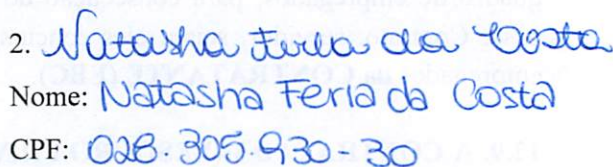 2. Natasha Feria da Costa
Nome: Natasha Feria da Costa
CPF: 028.305.930-30